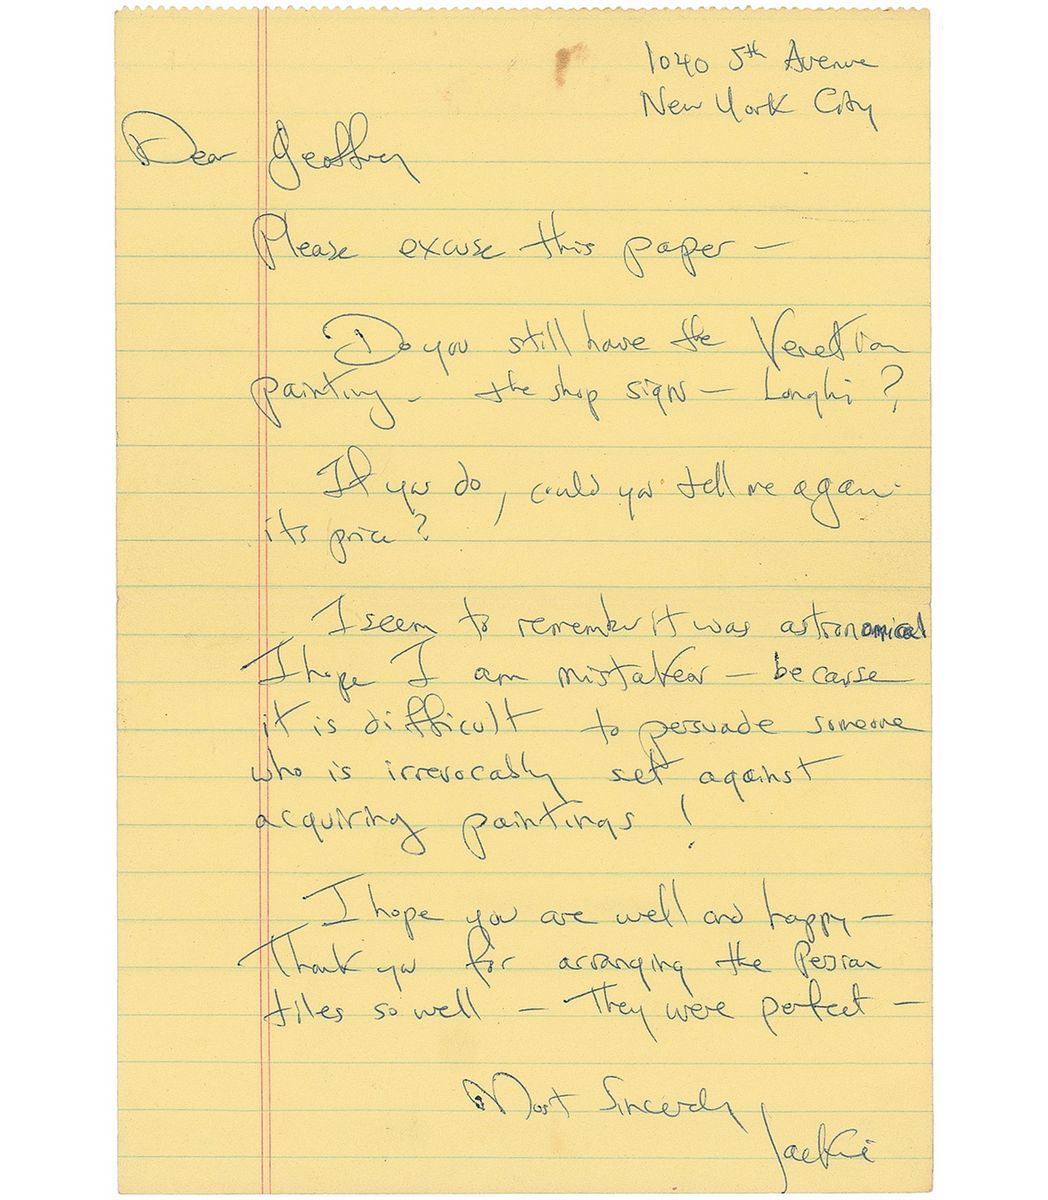 1040 5th Avenue
New York City
Dear Geoffrey
Please excuse this paper —
Do you still have the Venetian
painting - the shop sign — Longhi ?
If you do, could you tell me again
its price ?
I seem to remember it was astronomical
I hope I am mistaken — because
it is difficult to persuade someone
who is irrevocably set against
acquiring paintings !
I hope you are well and happy —
Thank you for arranging the Persian
tiles so well — They were perfect —
Most Sincerely
Jackie